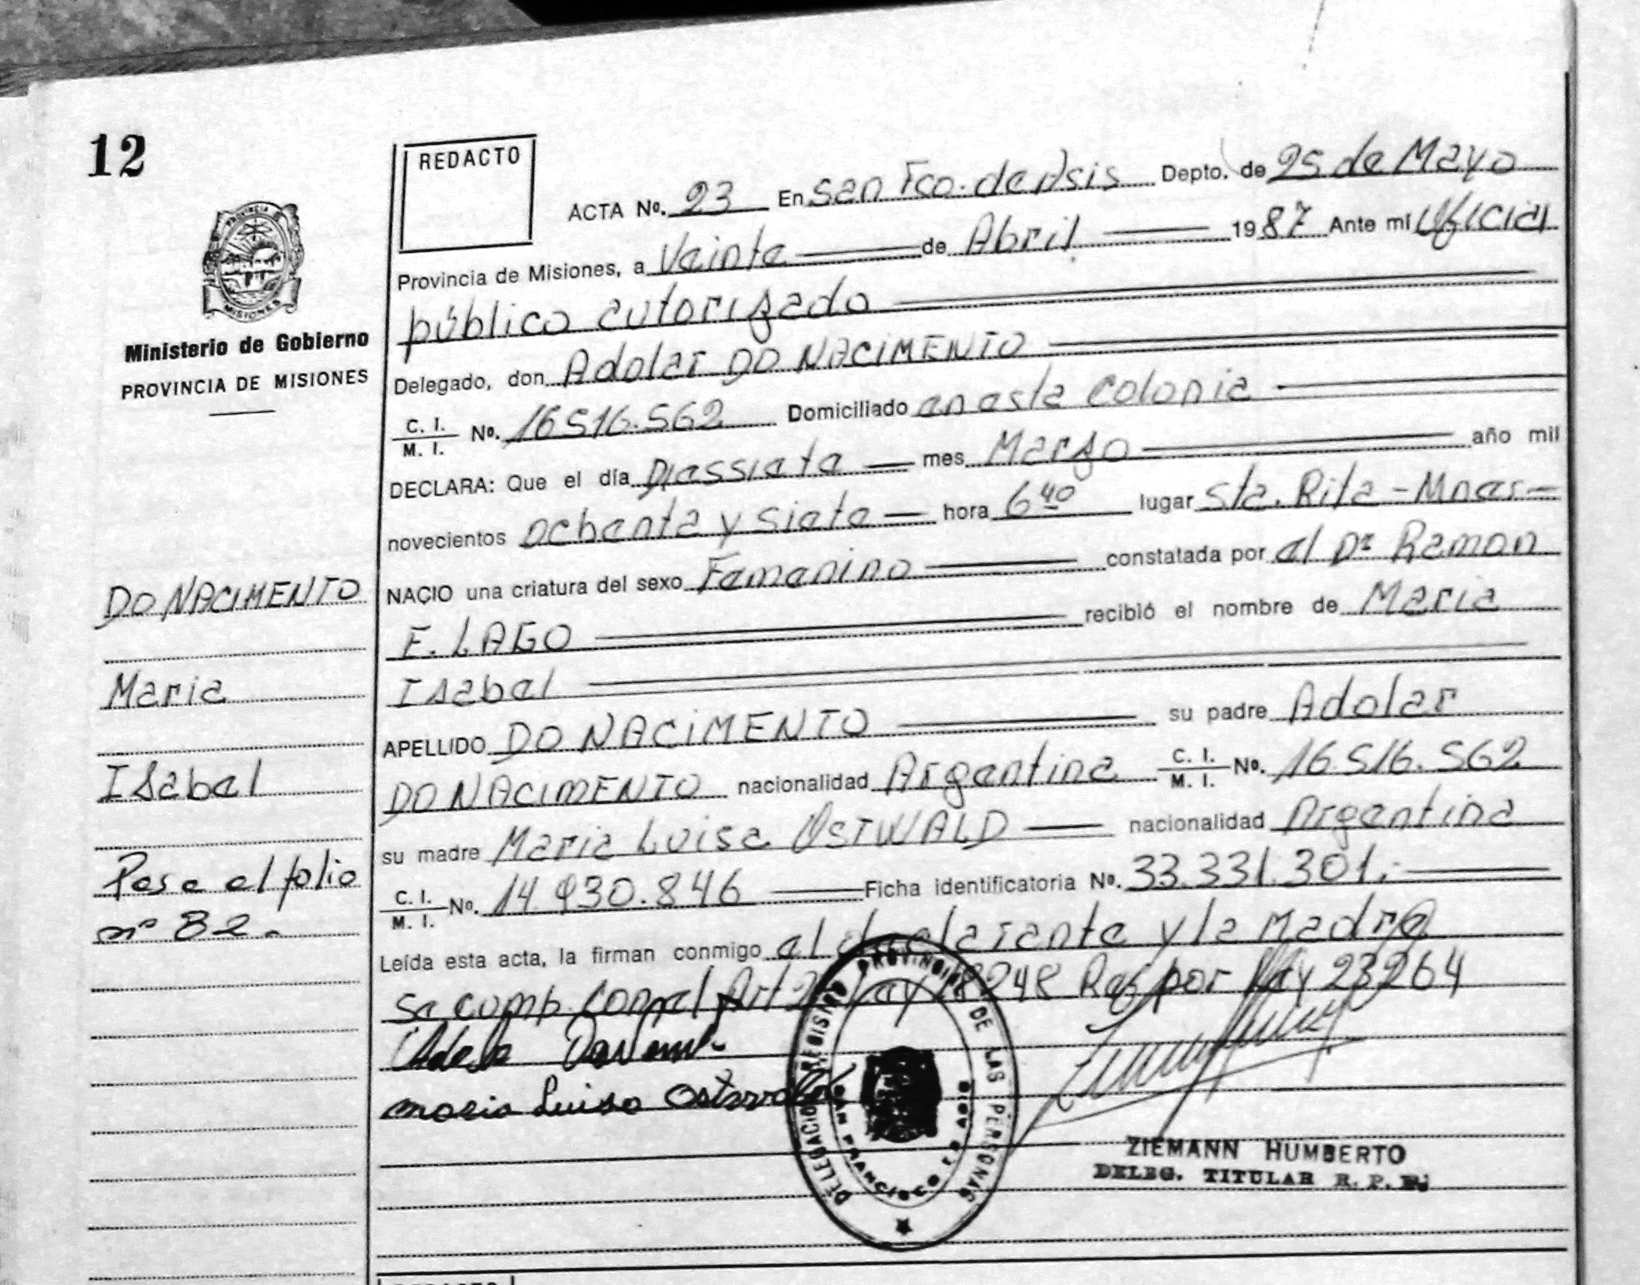 12
REDACTO
ACTA Nº. 23 En San Fco. de Asis Depto. de 25 de Mayo
Provincia de Misiones, a Veinte de Abril 1987 Ante mi Oficial
público autorizado
Delegado, don Adolar DO NACIMENTO
C. I. / M. I. Nº. 16.516.562 Domiciliado en esta Colonia
DECLARA: Que el día Diessiete mes Marzo año mil
novecientos ochenta y siete hora 6 40 lugar Sta. Rita - Mnes -
NACIO una criatura del sexo Femenino constatada por el Dr Ramon
E. LAGO recibió el nombre de Maria
Isabel
APELLIDO DO NACIMENTO su padre Adolar
DO NACIMENTO nacionalidad Argentina C. I. / M. I. Nº. 16.516.562
su madre Maria Luisa OSTWALD nacionalidad Argentina
C. I. / M. I. Nº. 14.930.846 Ficha identificatoria Nº. 33.331.301.-
Leída esta acta, la firman conmigo el declarante y la Madre
se comp. con el Art 2 Ley 18248 Reg por Ley 23264
Maria Luisa Ostwald
PROVINCIA DE MISIONES
Ministerio de Gobierno
PROVINCIA DE MISIONES
DO NACIMENTO
Maria
Isabel
Pase al folio
nº 82.
DELEGACION REGISTRO PROVINCIAL DE LAS PERSONAS
SAN FRANCISCO DE ASIS
ZIEMANN HUMBERTO
DELEG. TITULAR R. P. P.
REDACTO